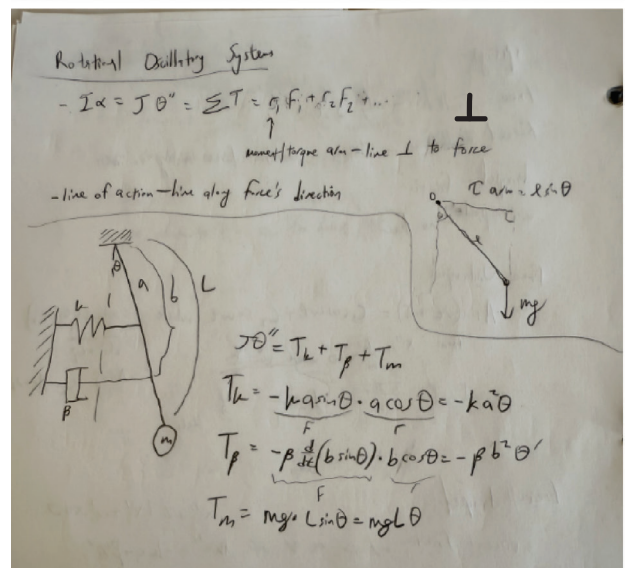 Rotational Oscillating Systems
- Iα = Jθ'' = ΣT = r₁F₁ + r₂F₂ + ...
⊥
↑
moment/torque arm - line ⊥ to force
- line of action - line along force's direction
τ arm = l sinθ
θ
l
mg
θ a b L
k
β
m
Jθ'' = T_k + T_β + T_m
T_k = -k a sinθ · a cosθ = -ka²θ
F r
T_β = -β d/dt (b sinθ) · b cosθ = -βb²θ'
F r
T_m = mg · L sinθ = mgLθ